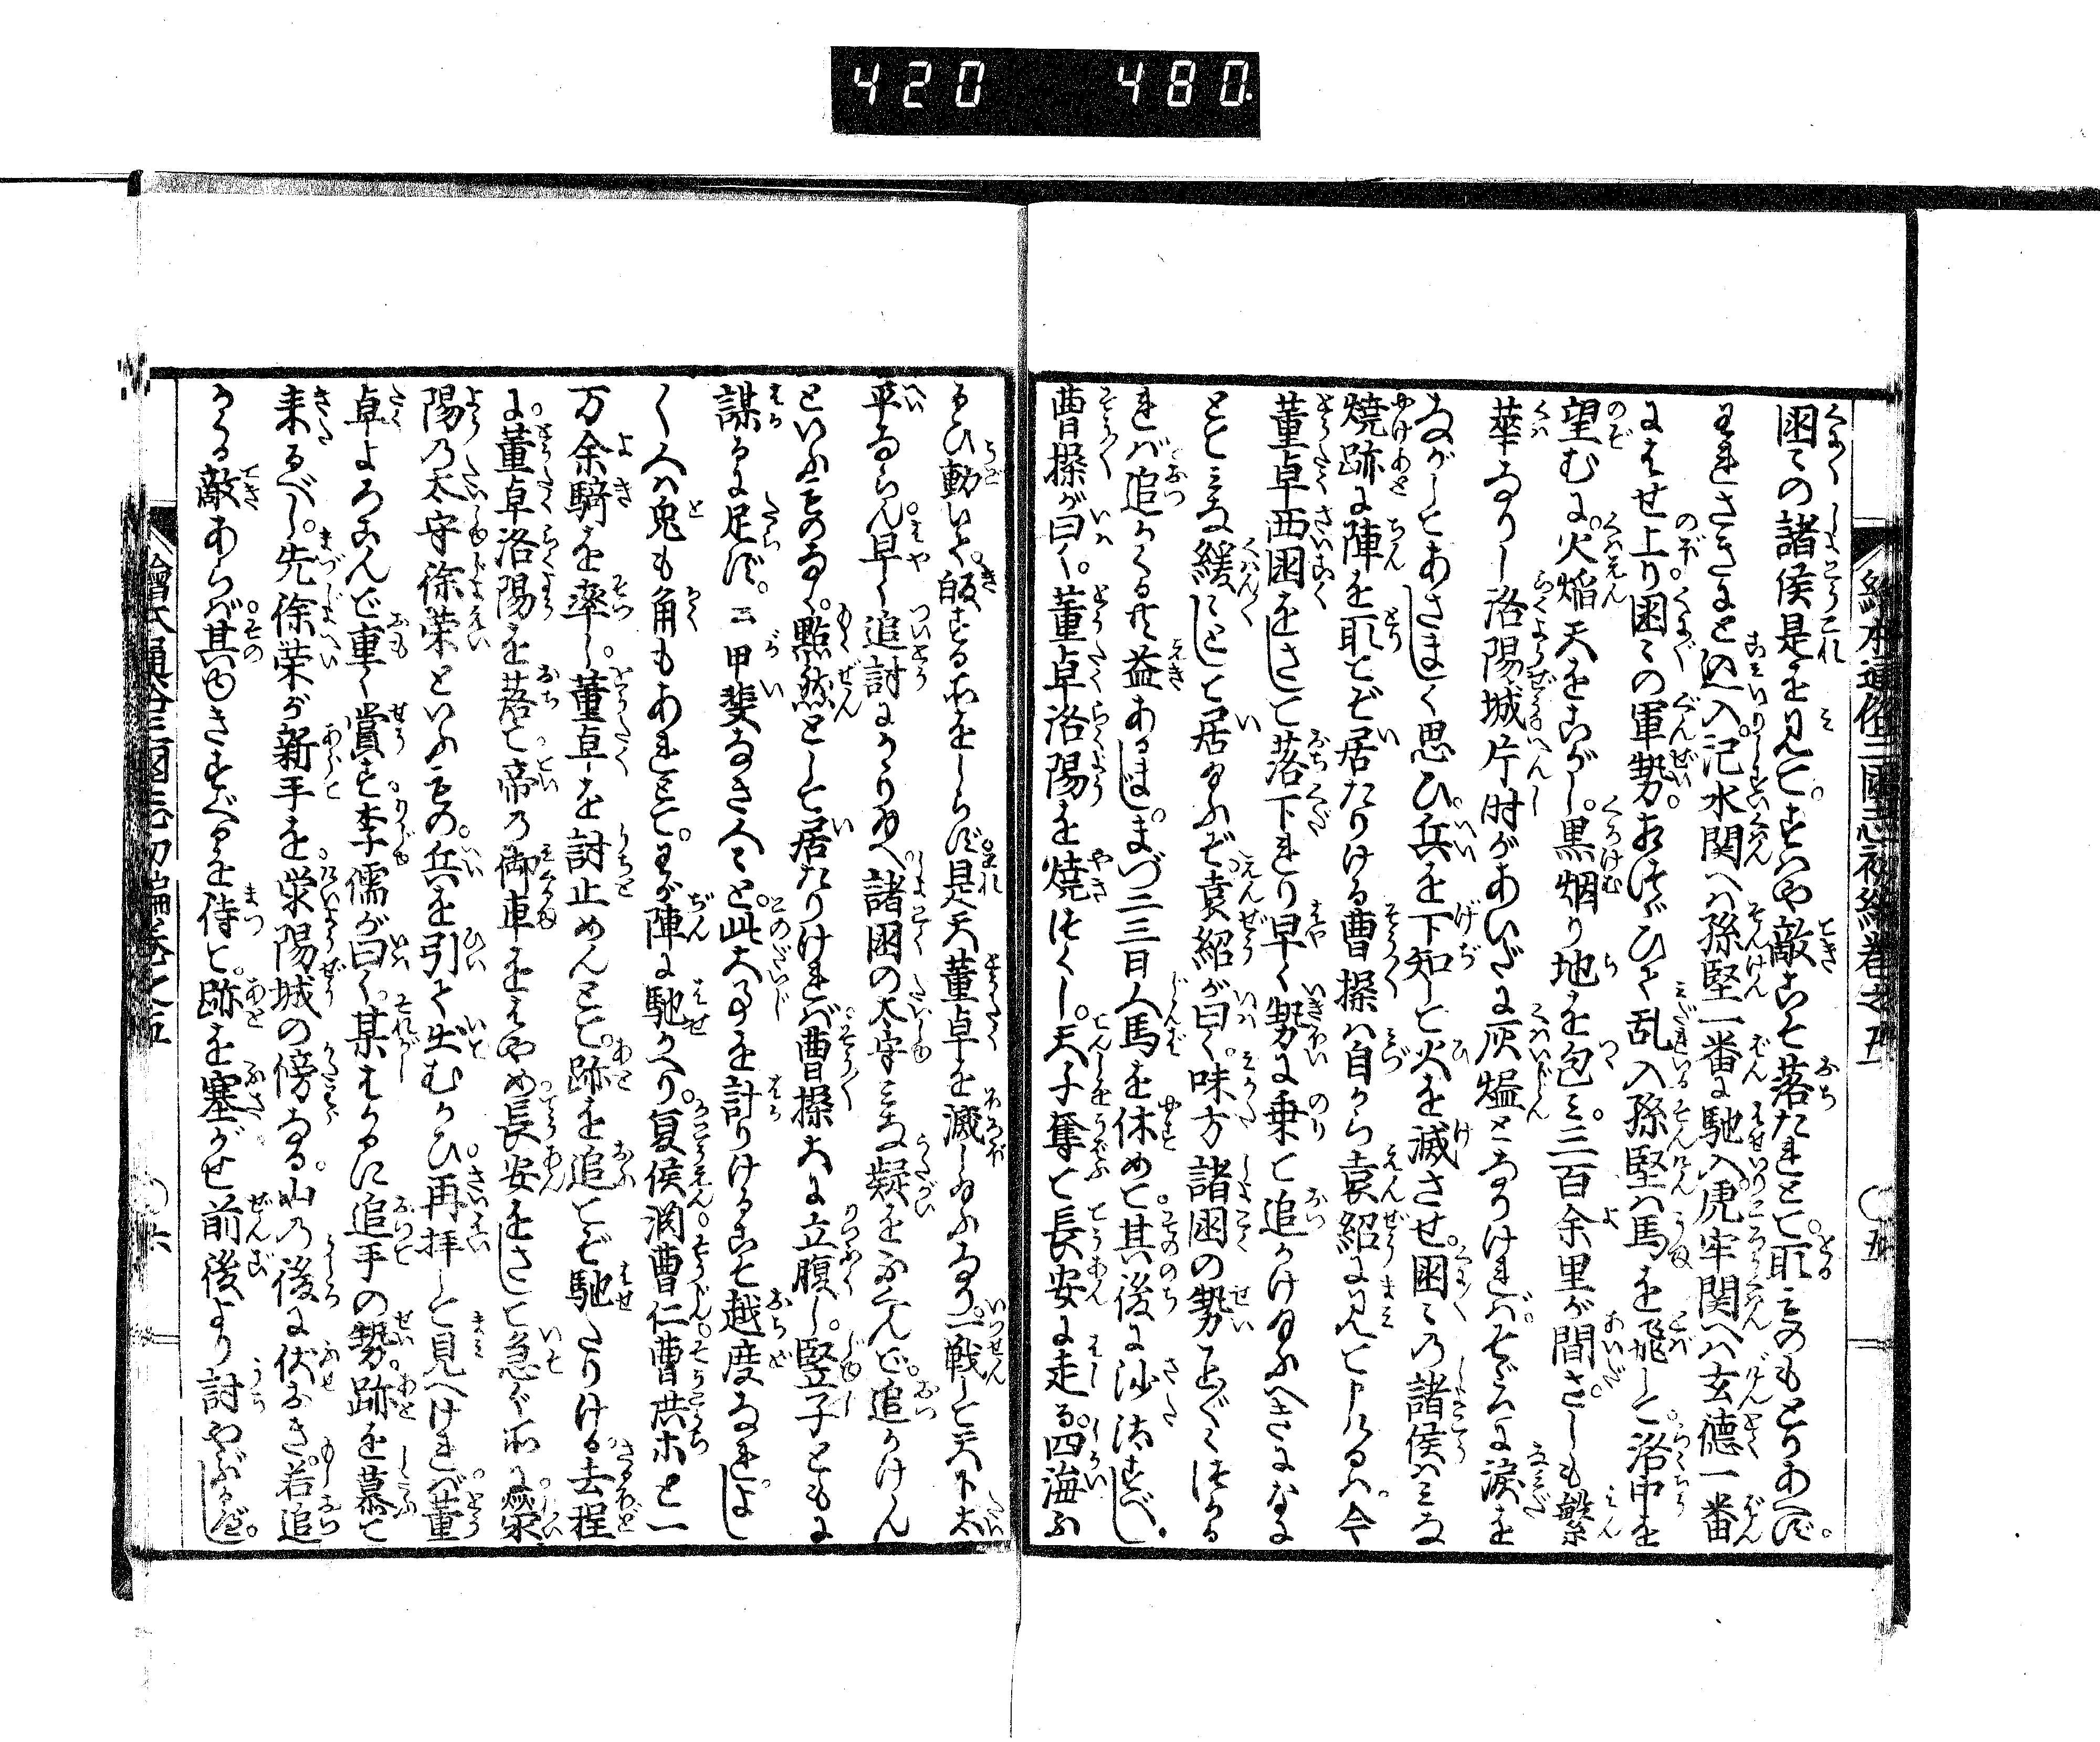 420 480
絵本通俗三國志初編巻之五 〇五
国〻の諸侯是を見て。すハや敵こそ落たれとて。取ものもとりあへず。
われさきにと込入。汜水関へハ孫堅一番に馳入。虎牢関へハ玄徳一番
にはせ上り。国〻の軍勢。相つゞひて乱入孫堅ハ馬を飛して。洛中を
望むに。火焔天をこがし。黒烟り地を包ミ。三百余里が間。さしも繁
華なりし洛陽城片時があいだに灰燼となりけれバ。そゞろに涙を
ながしてあさましく思ひ。兵を下知して火を滅させ。国〻の諸侯ハミな
焼跡に陣を取てぞ居たりける曹操ハ自から袁紹に見て申けるハ。今
董卓西国をさして落下れり早く勢に乗て追かけ給ふべきになに
とてミな緩〻として居給ふぞ。袁紹が曰く。味方諸国の勢ことごとくつかる
れバ追かくる共益あるまじ。まづ二三日人馬を休めて。其後に沙汰すべし。
曹操が曰く。董卓洛陽を焼つくし。天子奪て長安に走る。四海ふ
るひ動いて。帰する所をしらず。是天董卓を滅し給ふなり。一戦して天下太
平ならん。早く追討にかゝり給へ。諸国の太守ミな疑をふくんで。追かけん
といふものなく。黙然として居たりけれバ。曹操大に立腹し。竪子ともに
謀るに足ず。云甲斐なき人〻と。此大事を計りけるこそ越度なれ。よし
〱人ハ兎も角もあれとて。わが陣に馳かへり。夏侯淵。曹仁。曹洪ホと一
万余騎を率し。董卓を討止めんとて。跡を追てぞ馳たりける。去程
に。董卓洛陽を落て。帝の御車をはやめ長安をさして急ぐ所に。滎
陽の太守徐栄といふもの。兵を引て出むかひ。再拝して見へけれバ。董
卓よろこんで重く賞す。李儒が曰く。某はかるに追手の勢。跡を慕て
来るべし。先徐栄が新手を。滎陽城の傍なる。山の後に伏おき。若追
かゝる敵あらバ。其ゆきすぐるを待て。跡を塞がせ前後より討やぶるべし。
繪本通俗三国志初編巻之五 〇六